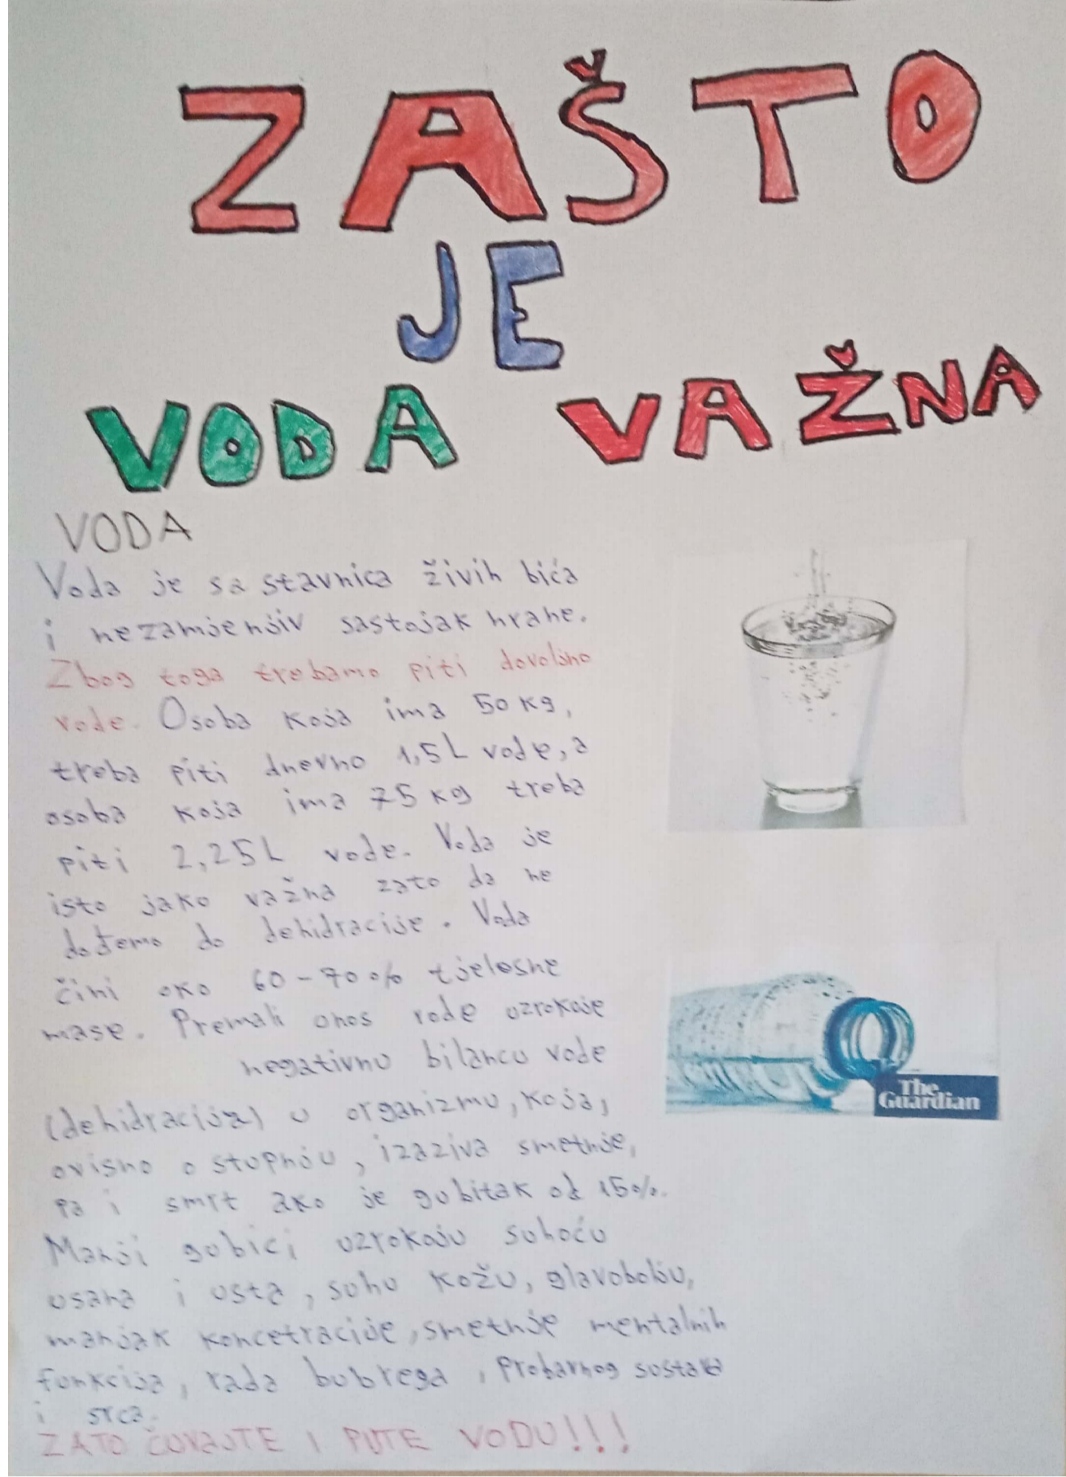 ZAŠTO
JE
VODA VAŽNA
VODA
Voda je sastavnica živih bića
i nezamjenjiv sastojak hrane.
Zbog toga trebamo piti dovoljno
vode. Osoba koja ima 50 kg,
treba piti dnevno 1,5L vode, a
osoba koja ima 75 kg treba
piti 2,25L vode. Voda je
isto jako važna zato da ne
dođemo do dehidracije. Voda
čini oko 60-70% tjelesne
mase. Premali unos vode uzrokuje
negativnu bilancu vode
(dehidracija) u organizmu, koja,
ovisno o stupnju, izaziva smetnje,
pa i smrt ako je gubitak od 15%.
Manji gubici uzrokuju suhoću
usana i usta, suhu kožu, glavobolju,
manjak koncetracije, smetnje mentalnih
funkcija, rada bubrega, probavnog sustava
i srca.
ZATO ČUVAJTE I PIJTE VODU!!!
The
Guardian